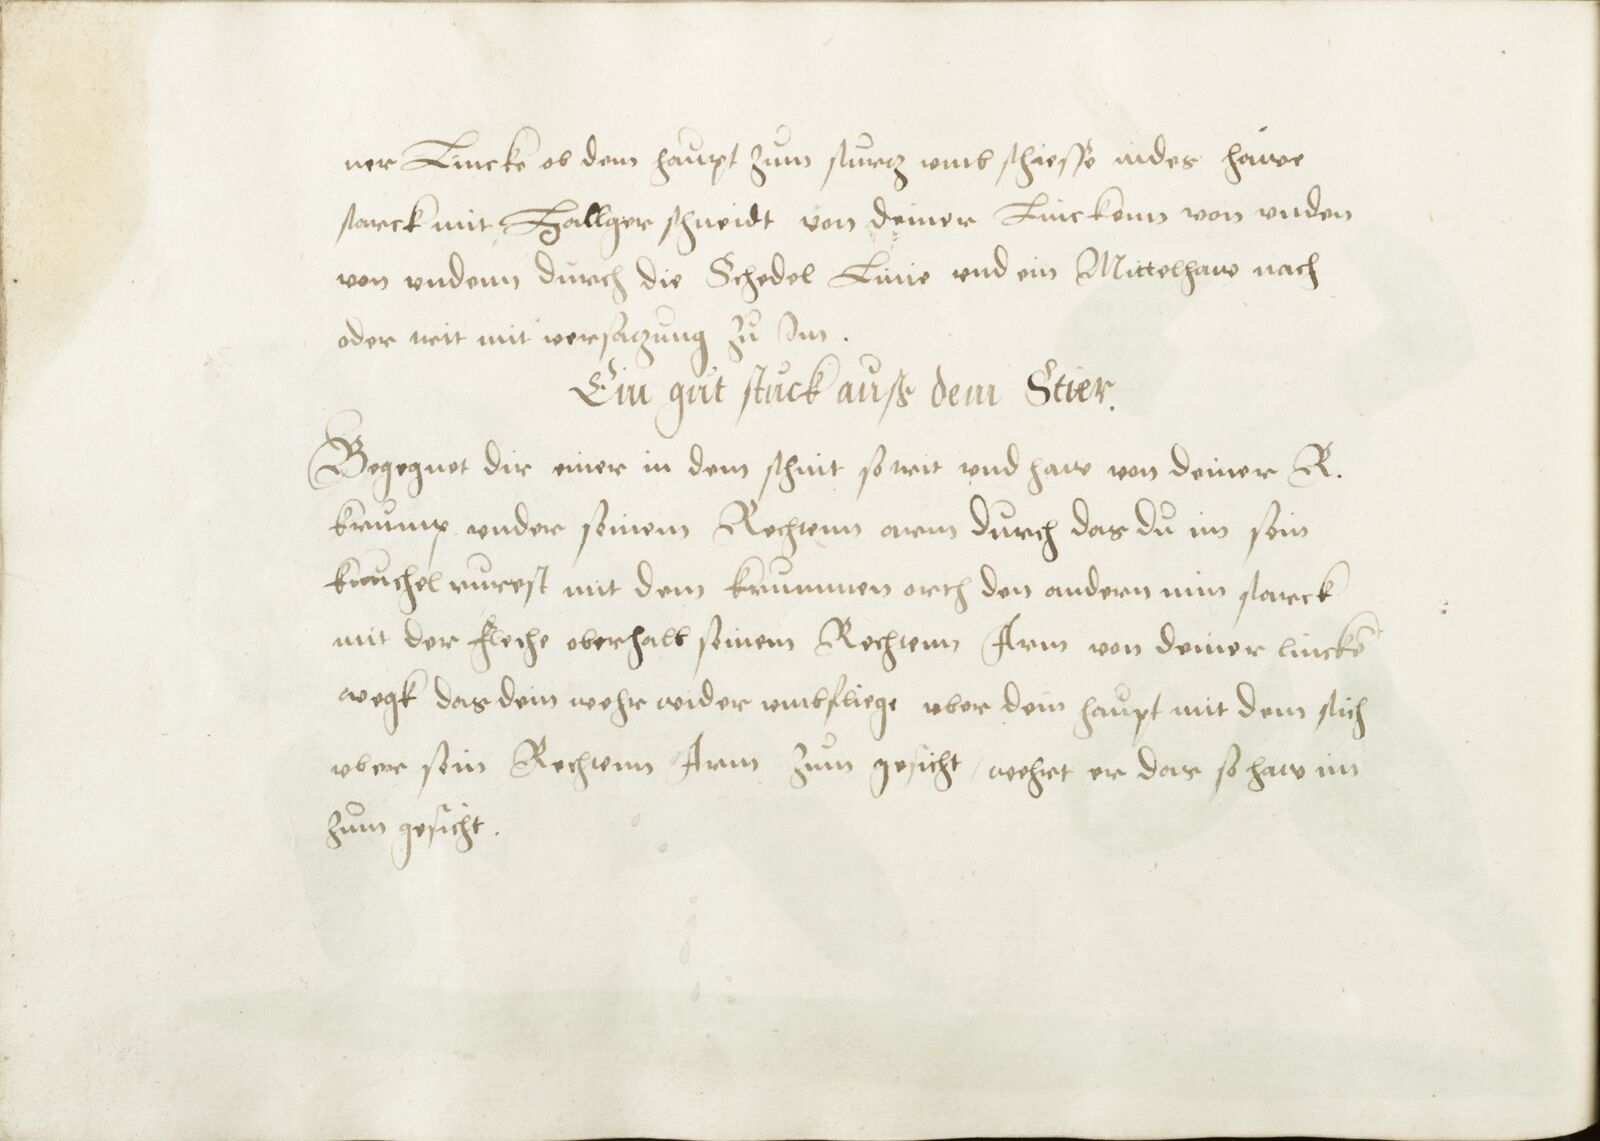 ner Lincke ob dem haupt zum sturtz umb schiesse indes hawe
starck mit Hallger schneidt von deiner Linckenn von unden
von undenn durch die Schedel Linie und ein Mittelhaw nach
oder trit mit versatzung zu Im.
Ein gut stuck auß dem Stier.
Begegnet dir einer in dem schnit so trit und haw von deiner R.
krump under seinem Rechtenn arm durch das du im sein
knuchel rurest mit dem krummen orth den andern nim starck
mit der fleche oberhalb seinem Rechtenn Arm von deiner linckē
wegk das dein wehr wider umbfliege uber dein haupt mit dem stich
uber sein Rechtenn Arm zum gesicht / wehrt er das so haw im
zum gesicht.